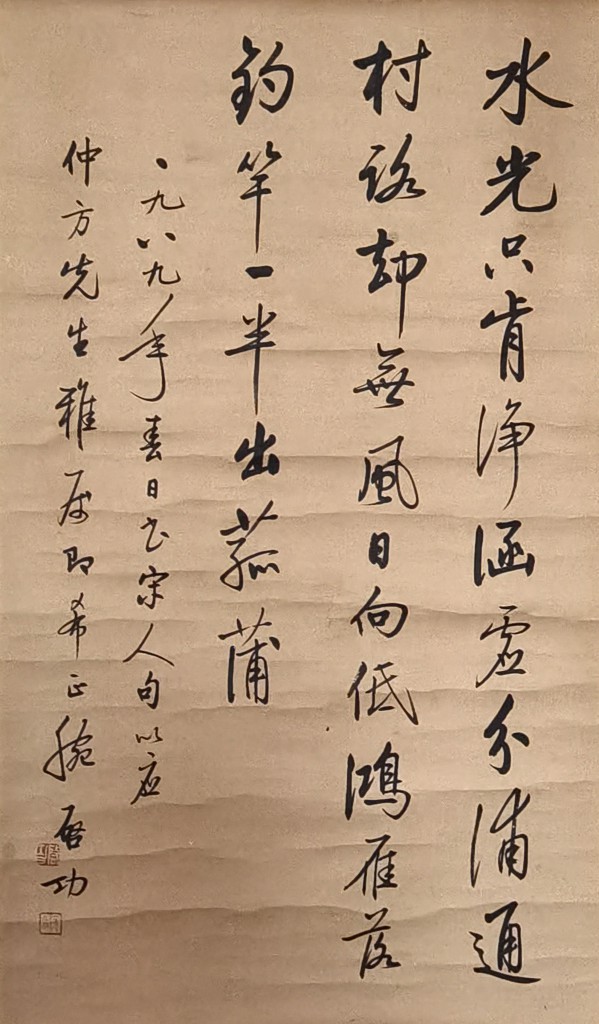 水光只肯净涵虚分浦通
村路却無風日向低鴻雁落
釣竿一半出菰蒲
一九八九年春日书宋人句以应
仲方先生雅属即希正腕 啓功